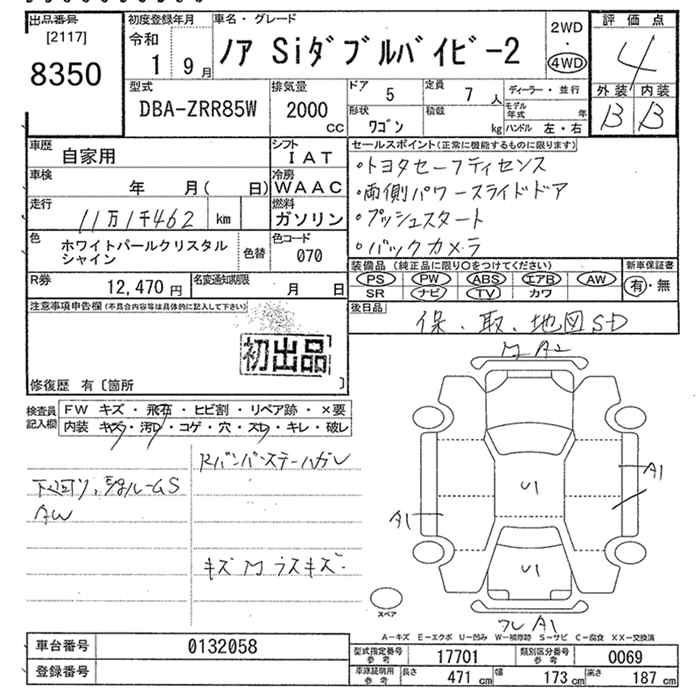 出品番号
[2117]
8350
初度登録年月
令和
1 9月
車名・グレード
ノア Siダブルバイビー2
2WD
・
4WD
評価点
4
外装 内装
B B
型式
DBA-ZRR85W
排気量
2000
cc
ドア 5
定員 7 人
形状 ワゴン
積載 kg
ディーラー・並行
モデル年式 年
ハンドル 左・右
車歴 自家用
シフト IAT
車検 年 月( 日)
冷房 WAAC
走行 11万1千462 km
燃料 ガソリン
色 ホワイトパールクリスタル
シャイン
色替
色コード 070
R券 12,470円
名変通知期限 月 日
セールスポイント(正常に機能するものに限ります)
・トヨタセーフティセンス
・両側パワースライドドア
・プッシュスタート
・バックカメラ
装備品(純正品に限り○をつけてください)
PS PW ABS エアB AW
SR ナビ TV カワ
新車保証書
有・無
後日品
保、取、地図SD
注意事項申告欄(不具合内容等は具体的に記入して下さい)
初出品
修復歴 有〔箇所 〕
検査員記入欄
FW キズ・飛石・ヒビ割・リペア跡・×要
内装 キズ・汚レ・コゲ・穴・スレ・キレ・破レ
Rバンパーステーハガレ
下廻リ、
ルームS
AW
キズ M ラスキズ・
M A2
A1
A1
U1
U1
A1
スペア
A-キズ E-エクボ U-凹み W-補修跡 S-サビ C-腐食 XX-交換済
車台番号 0132058
登録番号
型式指定番号 参考 17701
類別区分番号 参考 0069
車庫証明用 参考 長さ 471 cm 幅 173 cm 高さ 187 cm